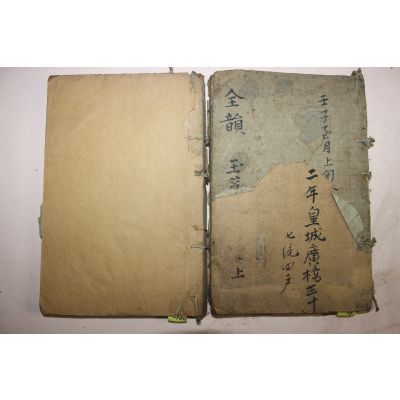 壬子至月上旬
二年皇城廣橋三十
七統四戶
全韻玉
上